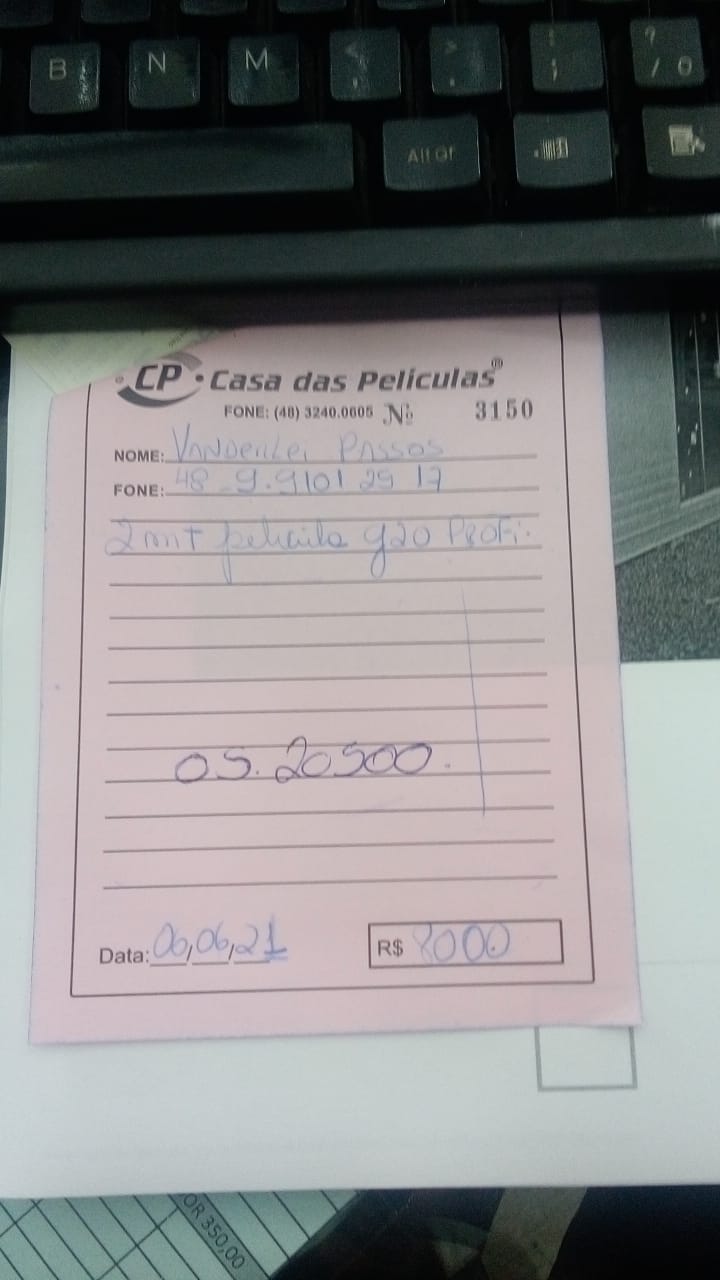 B N M < , > . : ; ? / °
Alt Gr
CP • Casa das Películas®
FONE: (48) 3240.0605 Nº 3150
NOME: Vanderlei Passos
FONE: 48 - 9.9101 29 17
2 mt pelicula g20 Profi.
OS. 20500.
Data: 06/06/21 R$ 8000
OR 350,00